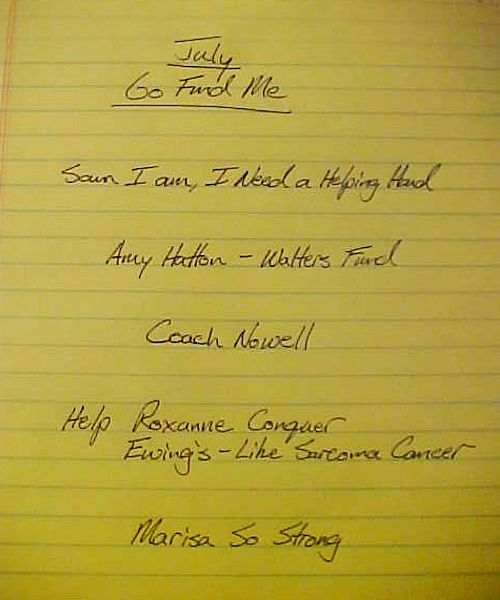 July
Go Fund Me
Sam I am, I Need a Helping Hand
Amy Hatton - Walters Fund
Coach Nowell
Help Roxanne Conquer
Ewing's - Like Sarcoma Cancer
Marisa So Strong